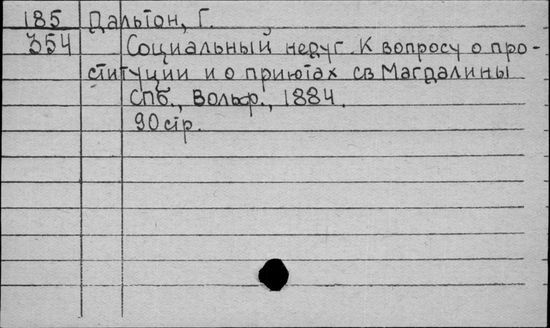 185 Дальтон, Г.
354 Социальный недуг. К вопросу о про-
ституции и о приютах св Магдалины
Спб., Вольф., 1884.
90 стр.